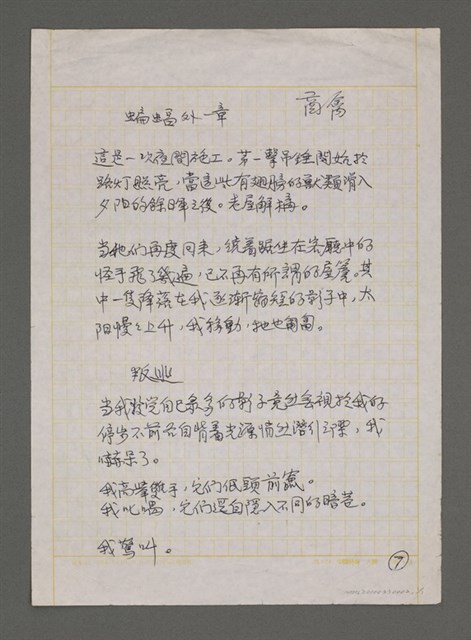 蝙蝠外一章
商禽
這是一次夜間施工。第一擊吊錘開始於
路灯照亮,當這些有翅膀的獸類滑入
夕陽的餘暉之後。老屋解構。
当牠们再度回来,繞着踞坐在客廳中的
怪手飛了幾遍,已不再有所謂的屋簷。其
中一隻降落在我逐漸縮短的影子中,太
阳慢慢上升,我移動,牠也匍匐。
叛逃
当我發完自己眾多的影子竟然無視於我的
停步不前各自背着光源悄然潛行之際,我
嚇呆了。
我高舉雙手,它们低頭前竄。
我叱喝,它们逕自隱入不同的暗巷。
我驚叫。
7